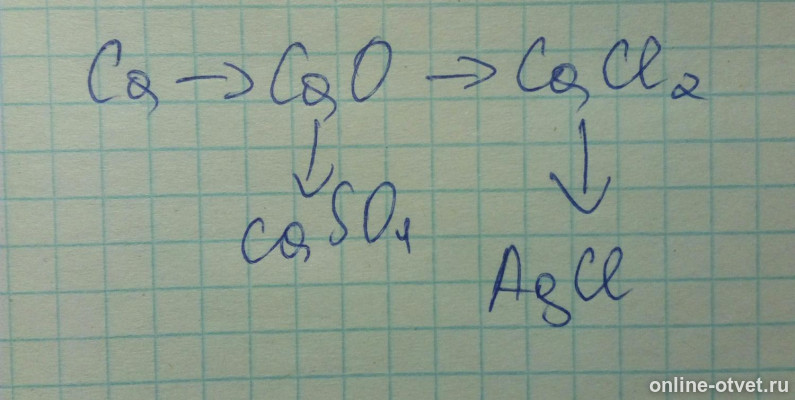 Ca → CaO → CaCl₂
↓ ↓
CaSO₄
AgCl
online-otvet.ru